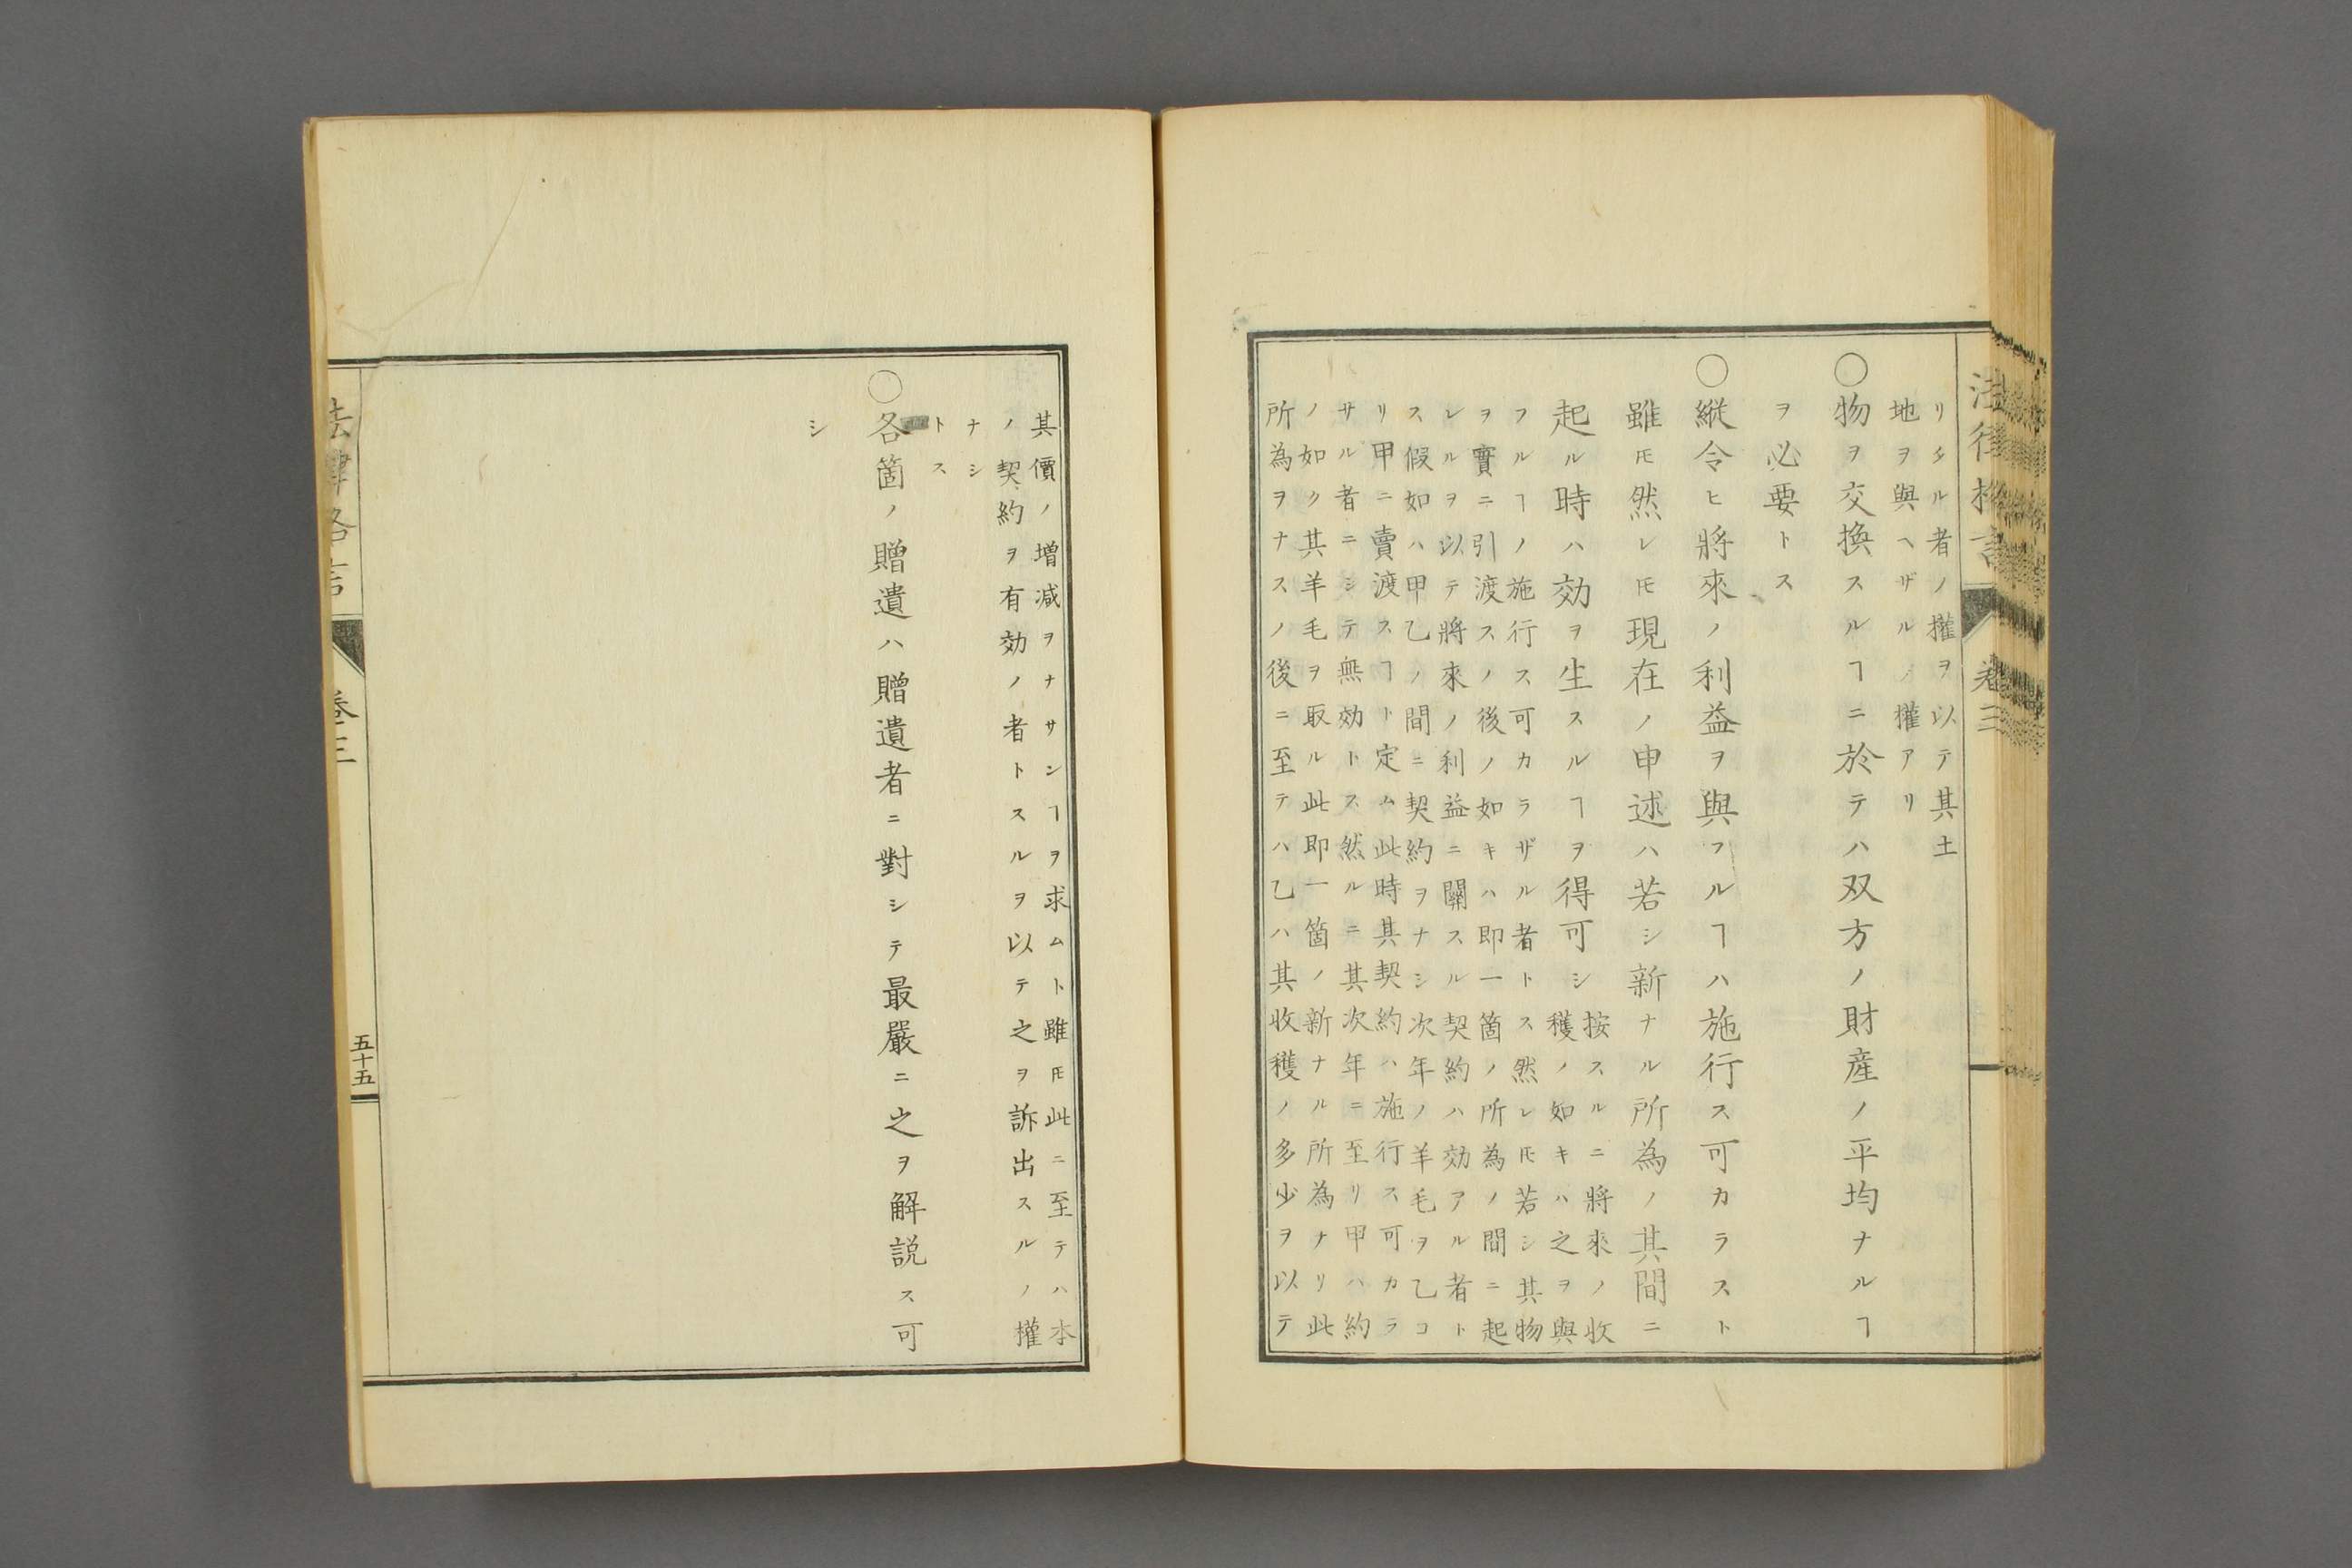 法律格言 巻三
リタル者ノ權ヲ以テ其土
地ヲ與ヘザルノ權アリ
○物ヲ交換スルヿニ於テハ双方ノ財産ノ平均ナルヿ
ヲ必要トス
○縦令ヒ將來ノ利益ヲ與フルヿハ施行ス可カラスト
雖𪜈然レ𪜈現在ノ申述ハ若シ新ナル所為ノ其間ニ
起ル時ハ効ヲ生スルヿヲ得可シ
按スルニ將來ノ收
穫ノ如キハ之ヲ與
フルヿノ施行ス可カラザル者トス然レ𪜈若シ其物
ヲ實ニ引渡スノ後ノ如キハ即一箇ノ所為ノ間ニ起
レルヲ以テ將來ノ利益ニ關スル契約ハ効アル者ト
ス假如ハ甲乙ノ間ニ契約ヲナシ次年ノ羊毛ヲ乙コ
リ甲ニ賣渡スヿト定ム此時其契約ハ施行ス可カラ
サル者ニシテ無効トス然ルニ其次年ニ至リ甲ハ約
ノ如ク其羊毛ヲ取ル此即一箇ノ新ナル所為ナリ此
所為ヲナスノ後ニ至テハ乙ハ其收穫ノ多少ヲ以テ
其價ノ増減ヲナサンヿヲ求ムト雖𪜈此ニ至テハ本
ノ契約ヲ有効ノ者トスルヲ以テ之ヲ訴出スルノ權
ナシ
トス
○各箇ノ贈遺ハ贈遺者ニ對シテ最嚴ニ之ヲ解説ス可
シ
法律格言 巻三 五十五